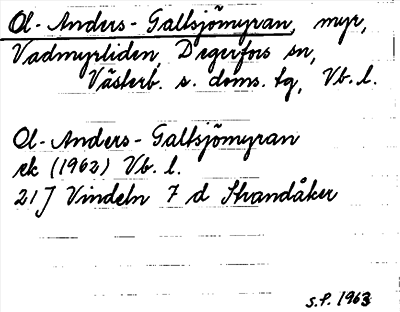 Ol-Anders-Galtsjömyran, myr,
Vadmyrliden, Degerfors sn,
Västerb. s. doms. tg, Vb. l.
Ol-Anders-Galtsjömyran
ek (1962) Vb. l.
21J Vindeln 7 d Strandåker
S.P. 1963